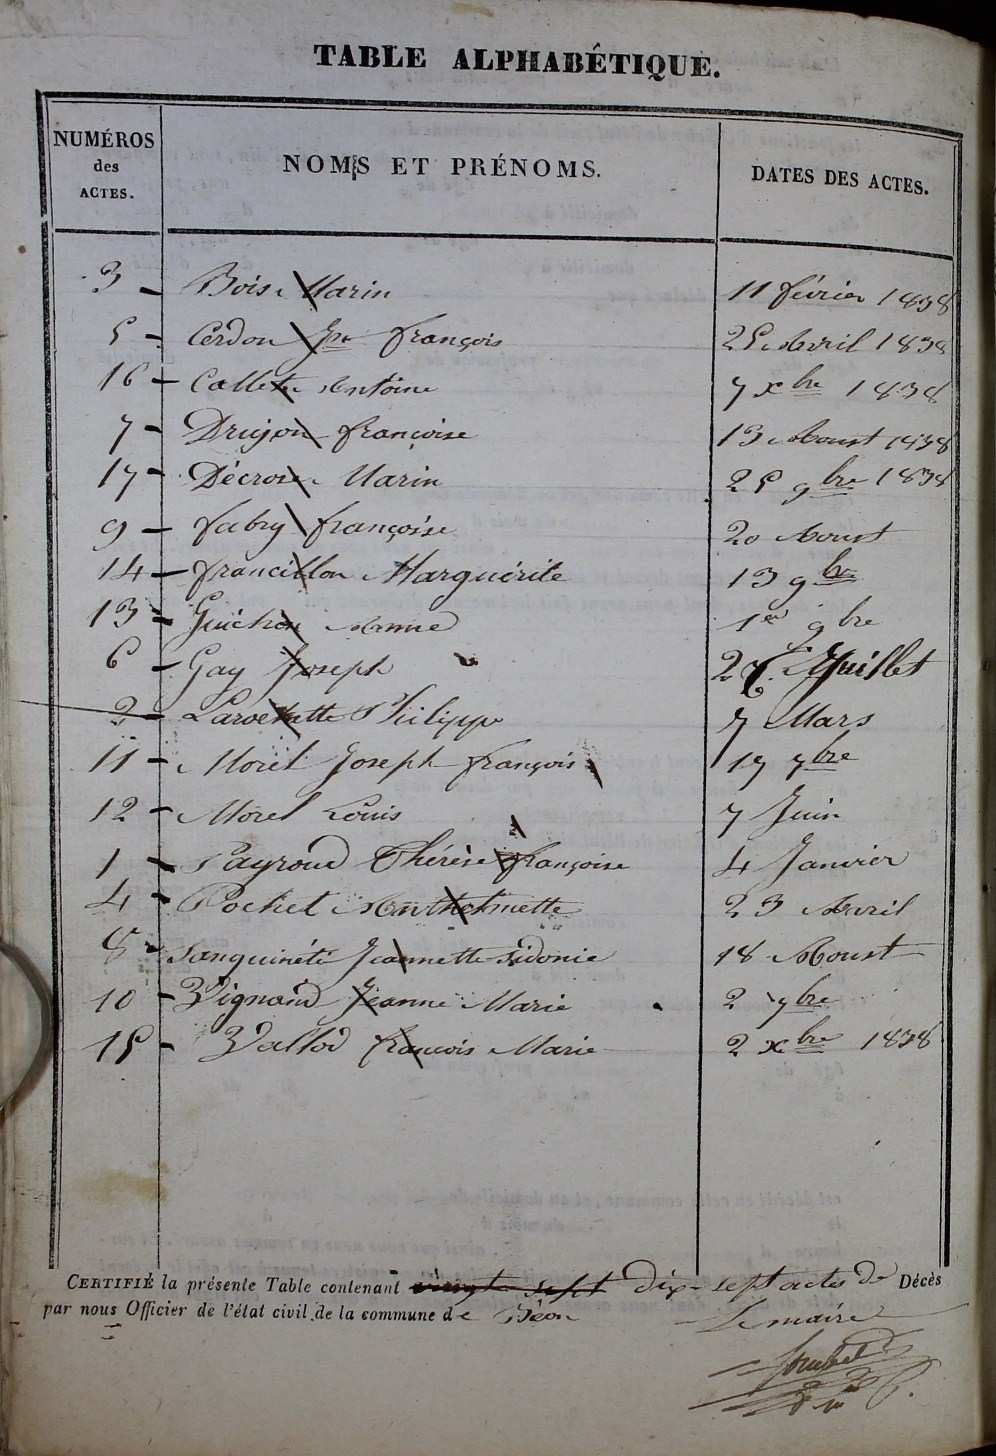 TABLE ALPHABÉTIQUE.
NUMÉROS des ACTES. NOMS ET PRÉNOMS. DATES DES ACTES.
3 Bois Marin 11 février 1838
5 Cerdon Jh françois 25 Avril 1838
16 Collet Antoine 7 xbre 1838
7 Drujon françoise 13 Aoust 1838
17 Décrose Marin 25 9bre 1838
9 fabry françoise 20 Aoust
14 francillon Marguérite 13 9bre
13 Guichon Anne 1er 9bre
6 Gay Joseph 27 Juillet
2 Larochette Philippe 7 Mars
11 Morel Joseph françois 17 7bre
12 Morel Louis 7 Juin
1 Payroud Thérèse françoise 4 Janvier
4 Pochet Anthelmette 23 Avril
8 Sanguinéti Jeannette Sidonie 18 Aoust
10 Vignand Jeanne Marie 2 9bre
15 Vallod francois Marie 2 xbre 1838
CERTIFIÉ la présente Table contenant vingt sept dix-sept actes de Décès
par nous Officier de l'état civil de la commune de Béon
Le maire